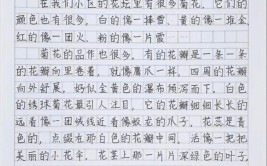 在我们小区的花坛里有很多菊花。它们的颜色也有很多，白的像一捧雪，黄的像一堆金，红的像一团火，粉的像一片霞
菊花的品种也很多，有的花瓣是一条一条的花瓣向里卷着，就像鹰爪一样，四周的花瓣向外舒展，奶似金黄色的瀑布倾泻而下。白色的绣球菊花最引人注目，它的花瓣细细长长的远看像一团绒线近看像蛟龙的爪子，花蕊是黄色的，点缀在那白色的花瓣中间，活像一把把美丽的小花伞，花茎上那一片片深绿色的叶子，